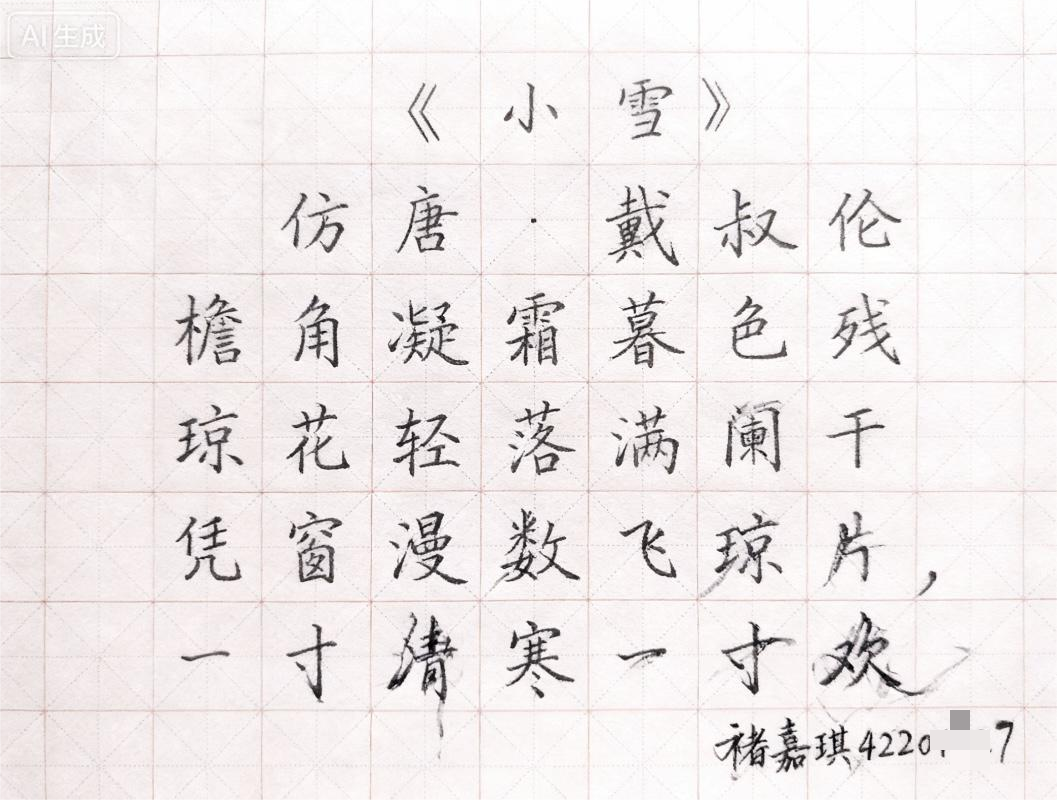 AI生成
《小雪》
仿唐·戴叔伦
檐角凝霜暮色残
琼花轻落满阑干
凭窗漫数飞琼片，
一寸清寒一寸欢
褚嘉琪4220